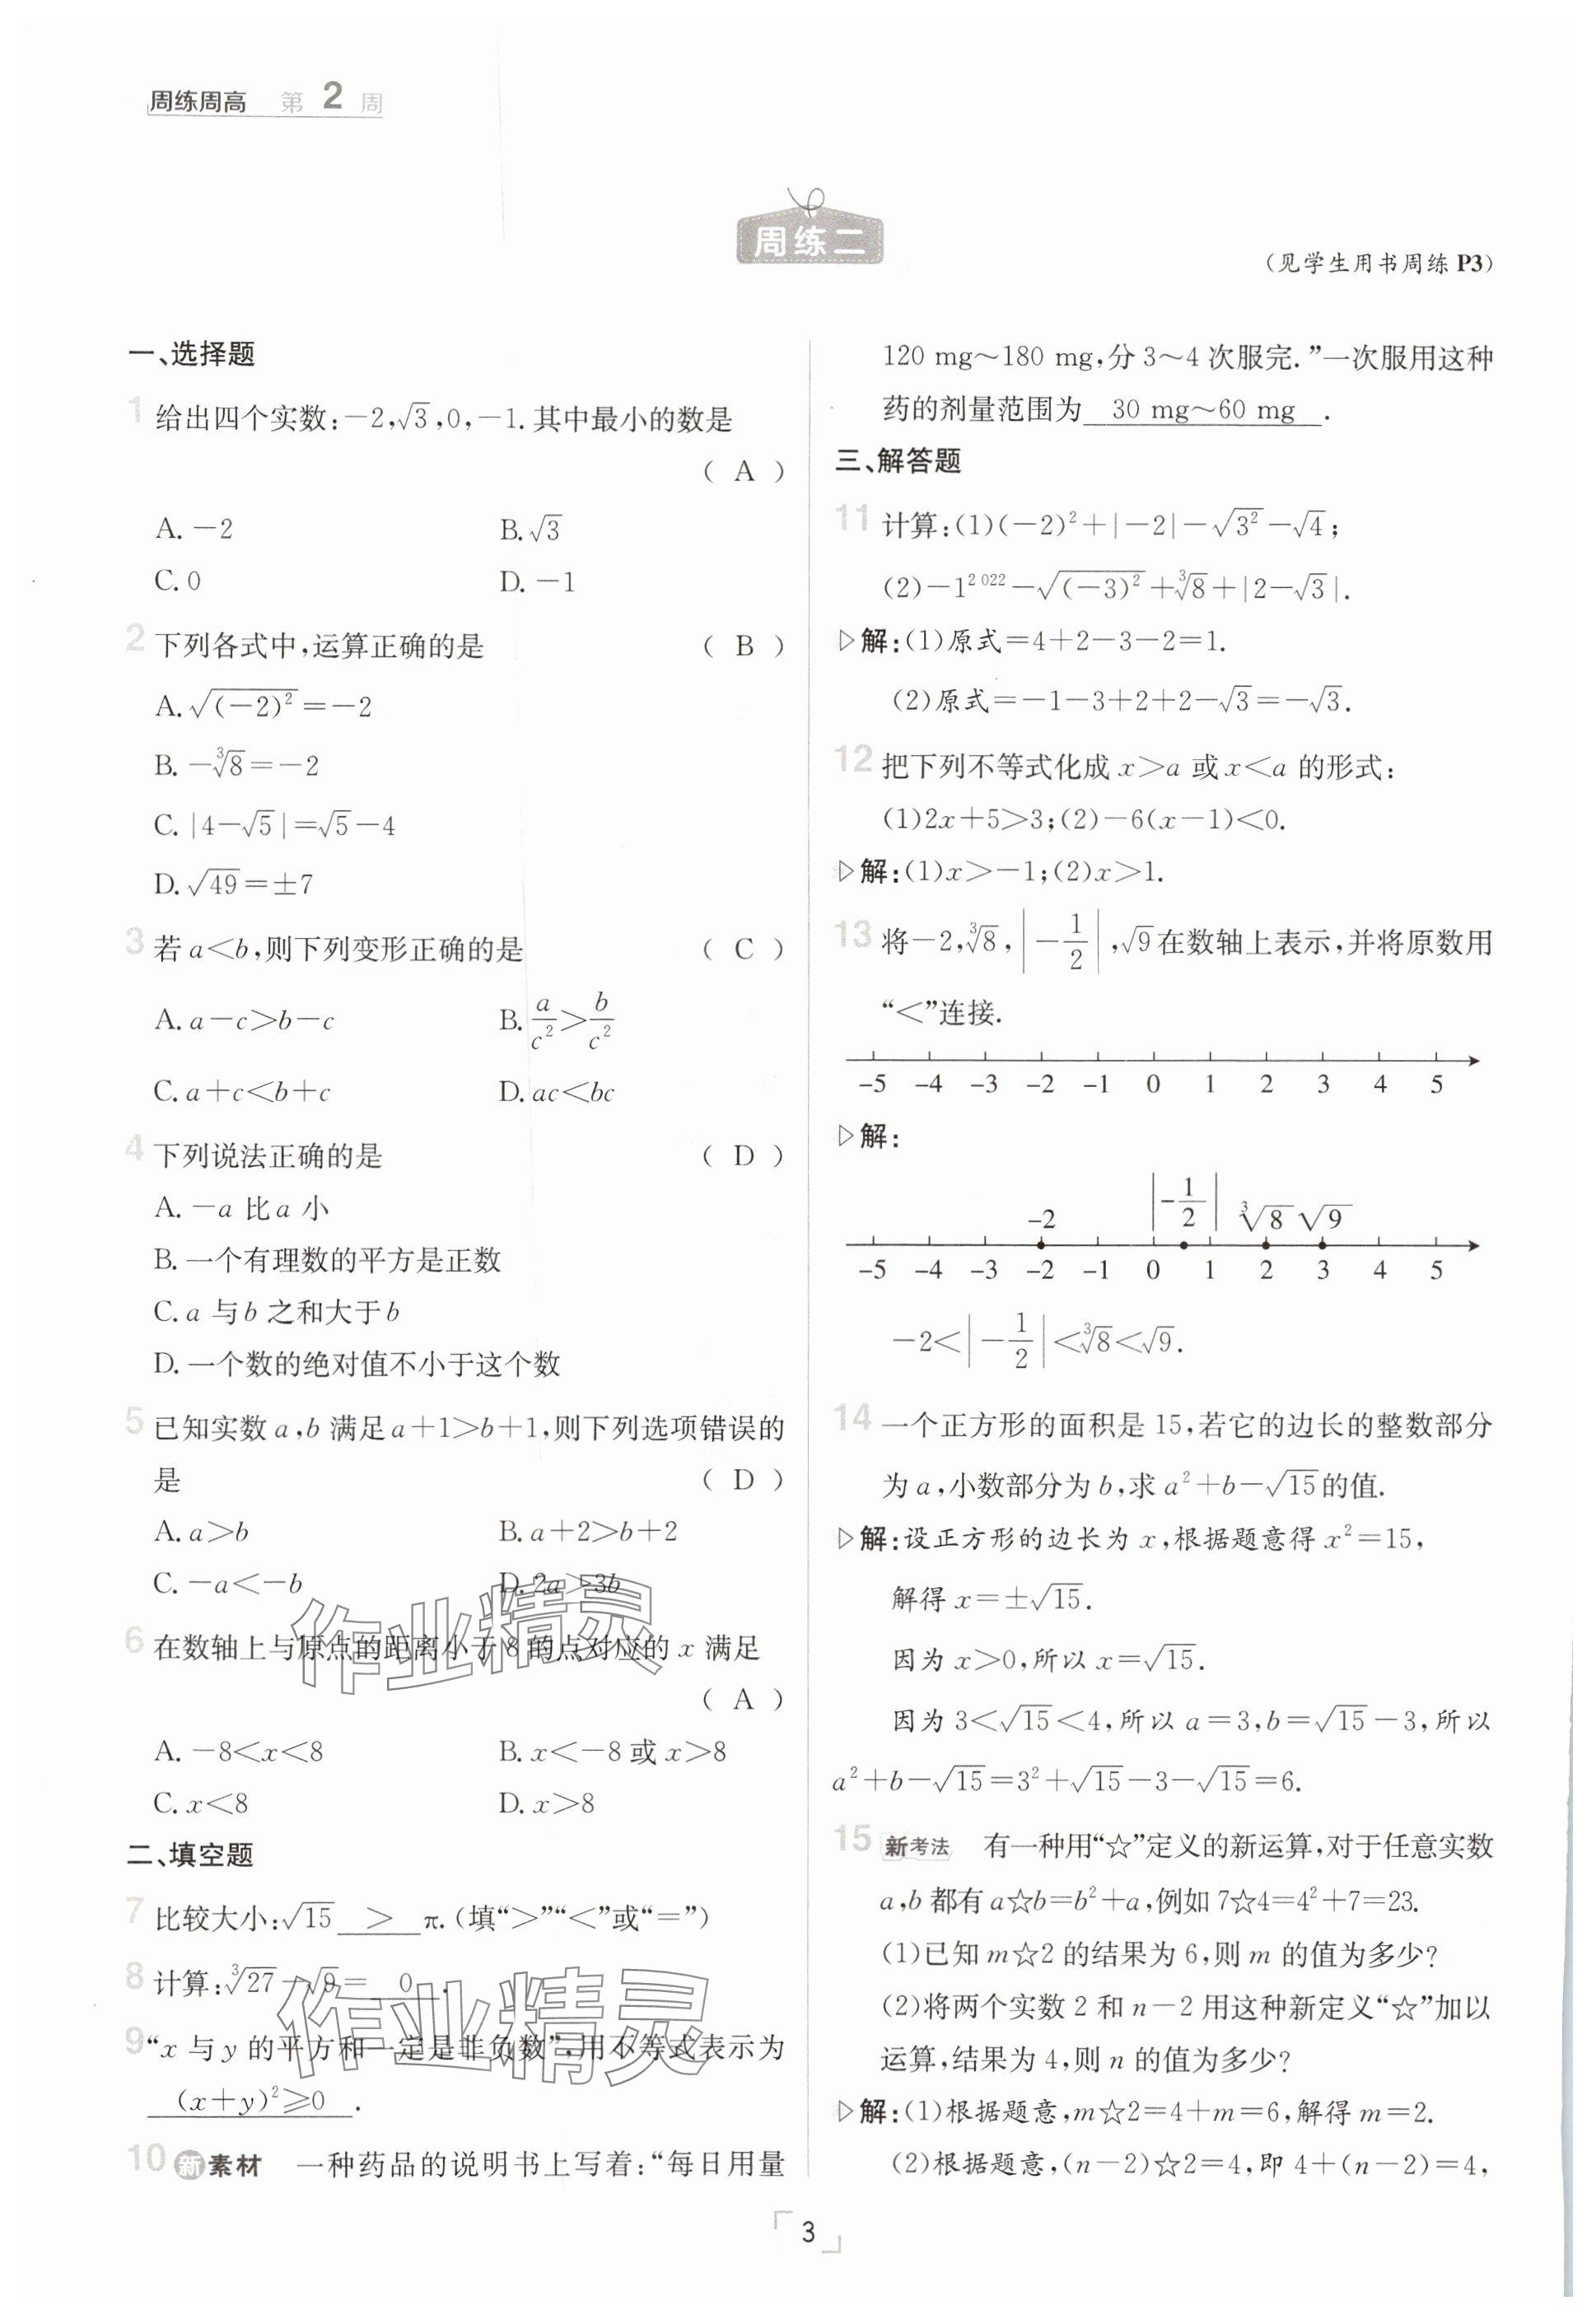 周练周高 第 2 周
周练二
(见学生用书周练 P3)
一、选择题
1 给出四个实数:-2,√3,0,-1.其中最小的数是
( A )
A. -2 B. √3
C. 0 D. -1
2 下列各式中,运算正确的是 ( B )
A. √(-2)² = -2
B. -∛8 = -2
C. |4-√5|=√5-4
D. √49=±7
3 若 a<b,则下列变形正确的是 ( C )
A. a-c>b-c B. a/c²>b/c²
C. a+c<b+c D. ac<bc
4 下列说法正确的是 ( D )
A. -a 比 a 小
B. 一个有理数的平方是正数
C. a 与 b 之和大于 b
D. 一个数的绝对值不小于这个数
5 已知实数 a,b 满足 a+1>b+1,则下列选项错误的
是 ( D )
A. a>b B. a+2>b+2
C. -a<-b D. 2a>3b
6 在数轴上与原点的距离小于 8 的点对应的 x 满足
( A )
A. -8<x<8 B. x<-8 或 x>8
C. x<8 D. x>8
二、填空题
7 比较大小:√15 > π.(填“>”“<”或“=”)
8 计算:∛27-√9= 0 .
9 “x 与 y 的平方和一定是非负数”,用不等式表示为
(x+y)²≥0 .
10 新素材 一种药品的说明书上写着:“每日用量
120 mg~180 mg,分 3~4 次服完.”一次服用这种
药的剂量范围为 30 mg~60 mg .
三、解答题
11 计算:(1)(-2)²+|-2|-√3²-√4;
(2)-1²⁰²²-√(-3)²+∛8+|2-√3|.
▷解:(1)原式=4+2-3-2=1.
(2)原式=-1-3+2+2-√3=-√3.
12 把下列不等式化成 x>a 或 x<a 的形式:
(1)2x+5>3;(2)-6(x-1)<0.
▷解:(1)x>-1;(2)x>1.
13 将-2,∛8,|-1/2|,√9在数轴上表示,并将原数用
“<”连接.
-5 -4 -3 -2 -1 0 1 2 3 4 5
▷解:
-2 |-1/2| ∛8 √9
-5 -4 -3 -2 -1 0 1 2 3 4 5
-2<|-1/2|<∛8<√9.
14 一个正方形的面积是 15,若它的边长的整数部分
为 a,小数部分为 b,求 a²+b-√15的值.
▷解:设正方形的边长为 x,根据题意得 x²=15,
解得 x=±√15.
因为 x>0,所以 x=√15.
因为 3<√15<4,所以 a=3,b=√15-3,所以
a²+b-√15=3²+√15-3-√15=6.
15 新考法 有一种用“☆”定义的新运算,对于任意实数
a,b 都有 a☆b=b²+a,例如 7☆4=4²+7=23.
(1)已知 m☆2 的结果为 6,则 m 的值为多少?
(2)将两个实数 2 和 n-2 用这种新定义“☆”加以
运算,结果为 4,则 n 的值为多少?
▷解:(1)根据题意,m☆2=4+m=6,解得 m=2.
(2)根据题意,(n-2)☆2=4,即 4+(n-2)=4,
作业精灵
作业精灵
3